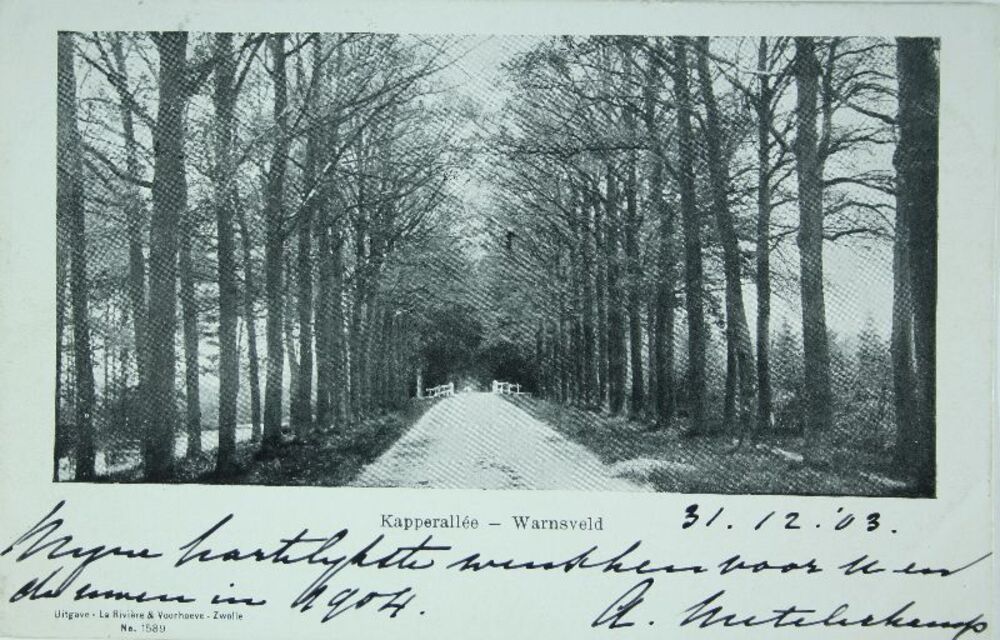 Kapperallée – Warnsveld
31. 12. '03.
Myne hartelykste wenschen voor u en
de uwen in 1904.
Uitgave - La Rivière & Voorhoeve - Zwolle
No. 1589
A.